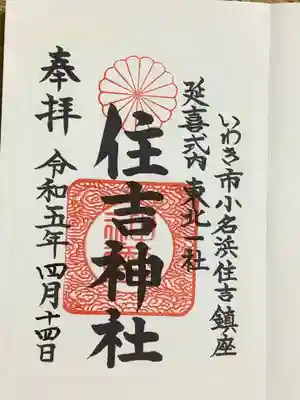 いわき市小名浜住吉鎮座
延喜式内 東北一社
住吉神社
奉拝
令和五年四月十四日